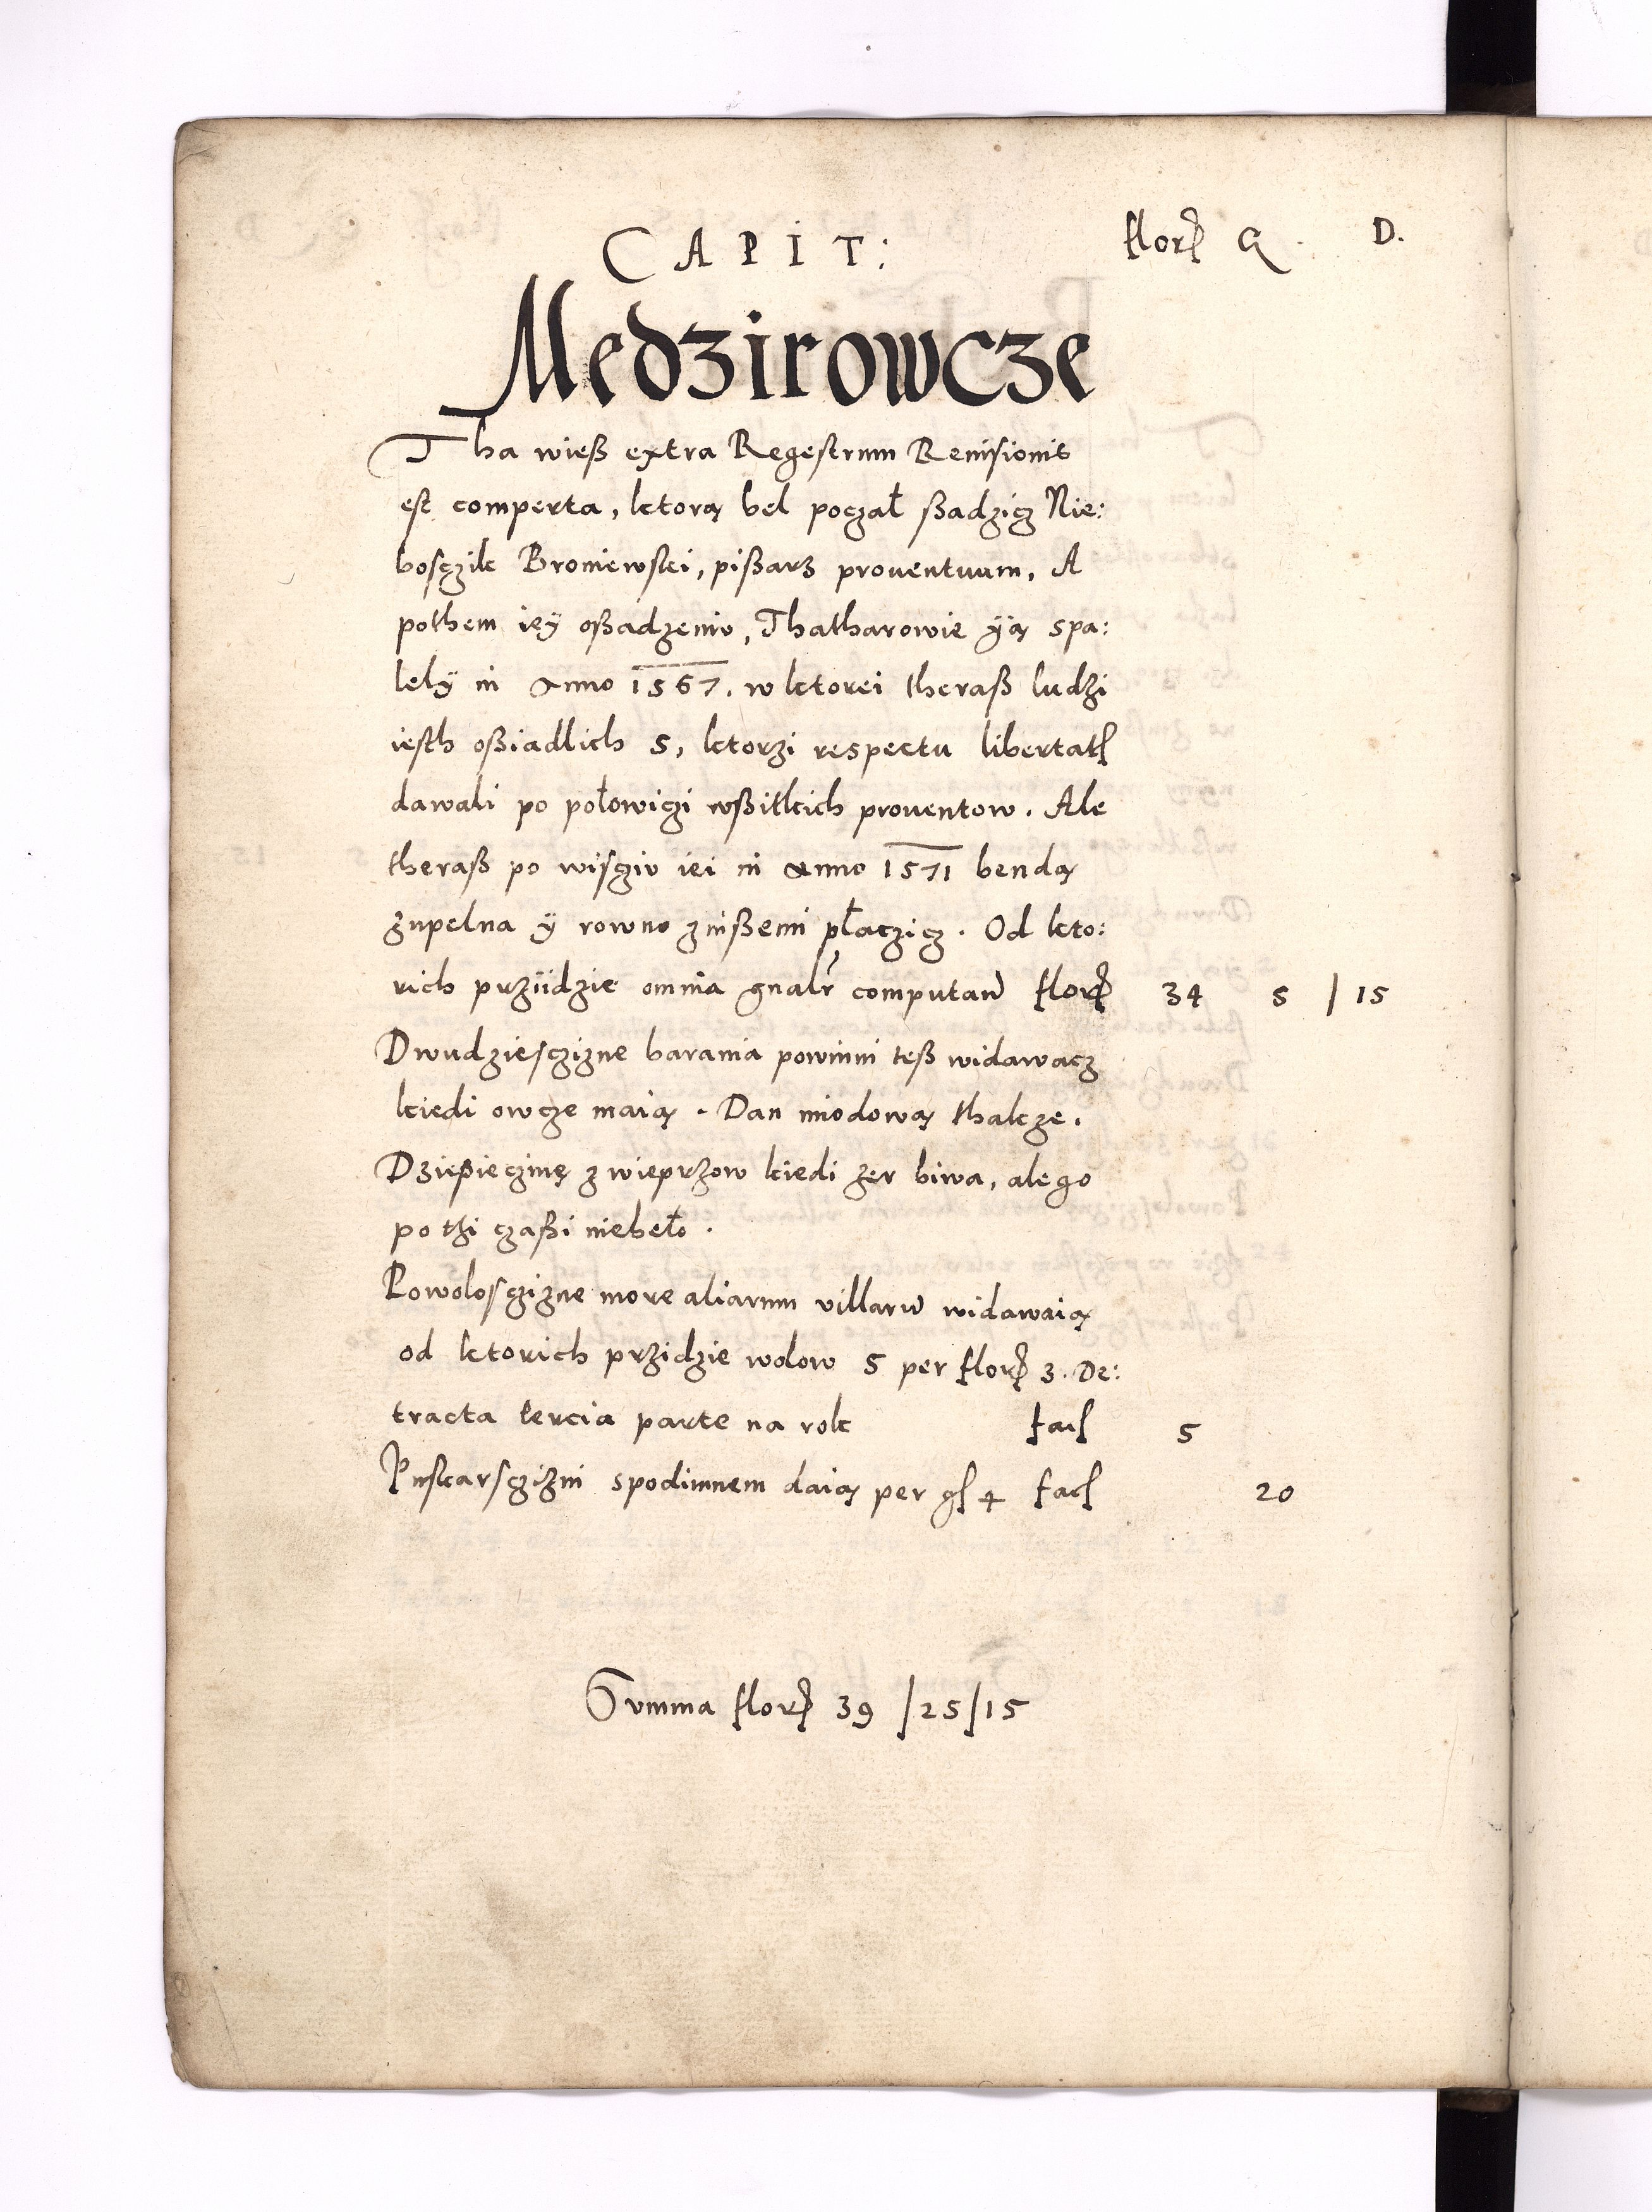 CAPIT: flor G. D.
Medzirowcze
Tha wieß extra Regestrum Reuisionis
est comperta, ktorą bel począł ßadzicz Nie:
bosczik Broniewski, pißarz prouentuum, A
pothem iey oßadzeniv, Thatharowie yą spa:
lely in Anno 1567. w ktorei theraß ludzi
iesth oßiadlich 5, ktorzi respectu libertatis
dawali po połowiczi wßitkich prouentow. Ale
theraß po wiscziv iei in Anno 1571 bendą
zupelna y rowno znißemi płaczicz. Od kto:
rich prziidzie omnia gnalr computand flor 34 5 / 15
Dwudziesczizne barania powinni teß widawacz
kiedi owcze maią. Dan miodową thakze.
Dzießieczinę z wieprzow kiedi zer biwa, ale go
po thi czaßi niebeło.
Powolosczizne more aliarum villaru widawaią
od ktorich przidzie wolow 5 per flor 3. De:
tracta tercia parte na rok facs 5
Puskarsczizni spodimnem daią per gs 4 facs 20
Summa flor 39 /25/15